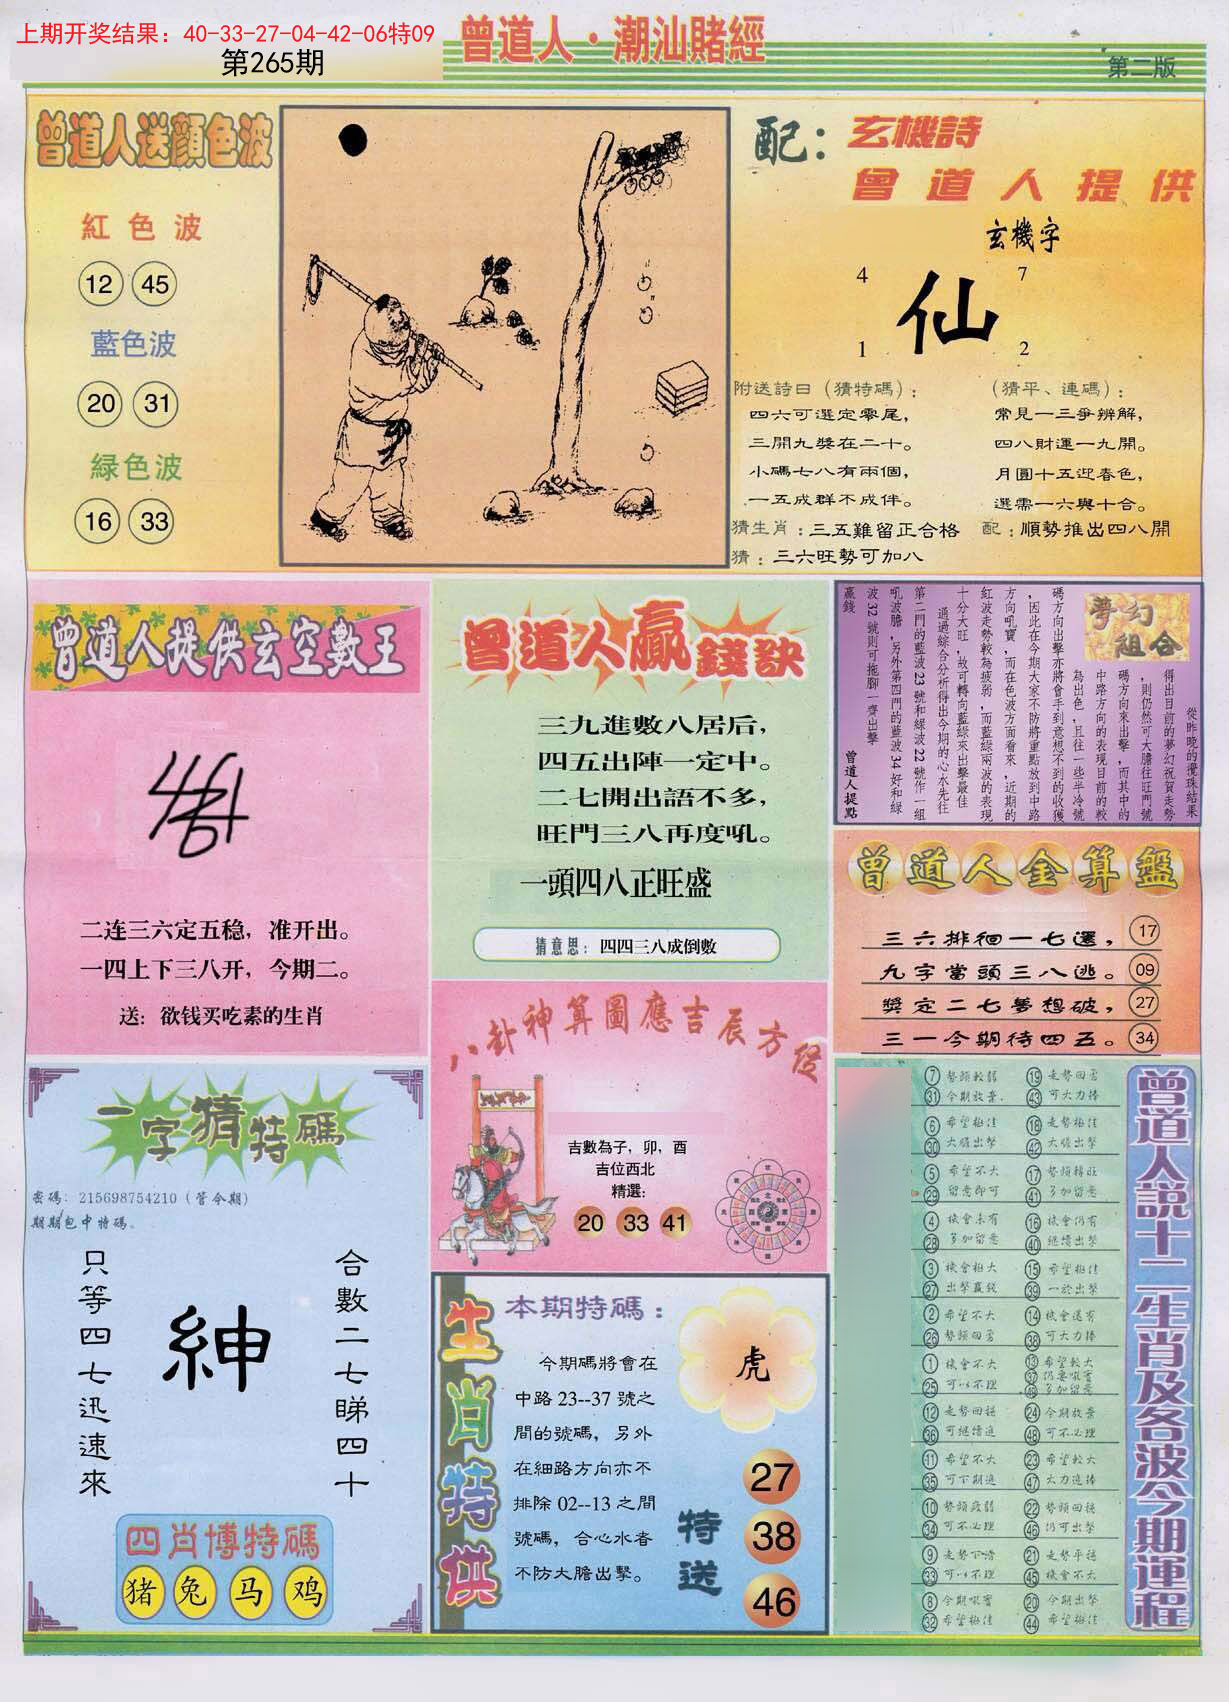 上期开奖结果：40-33-27-04-42-06特09
第265期
曾道人·潮汕賭經
第二版
曾道人送顔色波
紅色波
12 45
藍色波
20 31
緑色波
16 33
配：玄機詩
曾道人提供
玄機字
4 7
仙
1 2
附送詩曰（猜特碼）：
四六可選定零尾，
三開九獎在二十。
小碼七八有兩個，
一五成群不成伴。
（猜平、連碼）：
常見一三爭辨解，
四八財運一九開。
月圓十五迎春色，
選需一六與十合。
猜生肖：三五難留正合格
配：順勢推出四八開
猜：三六旺勢可加八
曾道人提供玄空數王
二连三六定五稳，准开出。
一四上下三八开，今期二。
送：欲钱买吃素的生肖
曾道人贏錢訣
三九進數八居后，
四五出陣一定中。
二七開出語不多，
旺門三八再度吼。
一頭四八正旺盛
猜意思：四四三八成倒數
夢幻組合
從昨晚的攪珠結果
得出目前的夢幻祝賀走勢
，則仍然可大膽往旺門號
碼方向來出擊，而其中的
中路方向的表現目前的較
為出色，且往一些半冷號
碼方向出擊亦將會手到意想不到的收獲
，因此在今期大家不防將重點放到中路
方向吼寶，而在色波方面看來，近期的
紅波走勢較為疲弱，而藍綠兩波的表現
十分大旺，故可轉向藍綠來出擊最佳
通過綜合分析得出今期的心水先往
第二門的藍波23號和綠波22號作一組
吼波膽，另外第四門的藍波34好和綠
波32號則可拖腳一齊出擊
贏錢
曾道人提點
曾道人金算盤
三六排徊一七選， 17
九字當頭三八逃。 09
獎定二七夢想破， 27
三一今期待四五。 34
八卦神算圖應吉辰方位
吉數為子，卯，酉
吉位西北
精選：
20 33 41
一字猜特碼
密碼：215698754210（管今期）
期期包中特碼。
合數二七睇四十
紳
只等四七迅速來
四肖博特碼
猪 兔 马 鸡
生肖特供
本期特碼：
今期碼將會在
中路23--37號之
間的號碼，另外
在細路方向亦不
排除02--13之間
號碼，合心水者
不防大膽出擊。
虎
特送
27
38
46
曾道人說十二生肖及各波今期運程
7 勢頭較弱 19 走勢回勇
31 今期放棄. 43 可大力捧
6 希望極佳 18 走勢極佳
30 大膽出擊 42 大膽出擊
5 希望不大 17 勢頭轉旺
29 留意即可 41 多加留意
4 機會未有 16 機會仍有
28 多加留意 40 繼續出擊
3 機會極大 15 希望極佳
27 出擊贏錢 39 一於出擊
2 希望不大 14 機會還有
26 勢頭回勇 38 可大力捧
1 機會不大 13 希望較大
25 可以不理 37 仍要吼實
49 多加留意
12 走勢回穩 24 今期放棄
36 可繼續追 48 可不必理
11 希望不大 23 希望較大
35 可下期追 47 大力追捧
10 勢頭疲弱 22 勢頭回穩
34 可不必理 46 仍可出擊
9 走勢下滑 21 走勢平穩
33 可以不理 45 機會不大
8 今期吼實 20 今期出擊
32 希望極佳 44 希望極佳